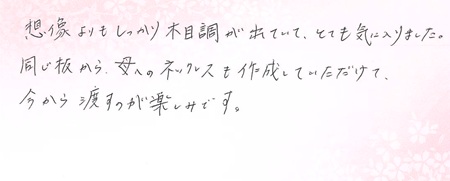 想像よりもしっかり木目調が出ていて、とても気に入りました。
同じ板から、母へのネックレスも作成していただけて、
今から渡すのが楽しみです。